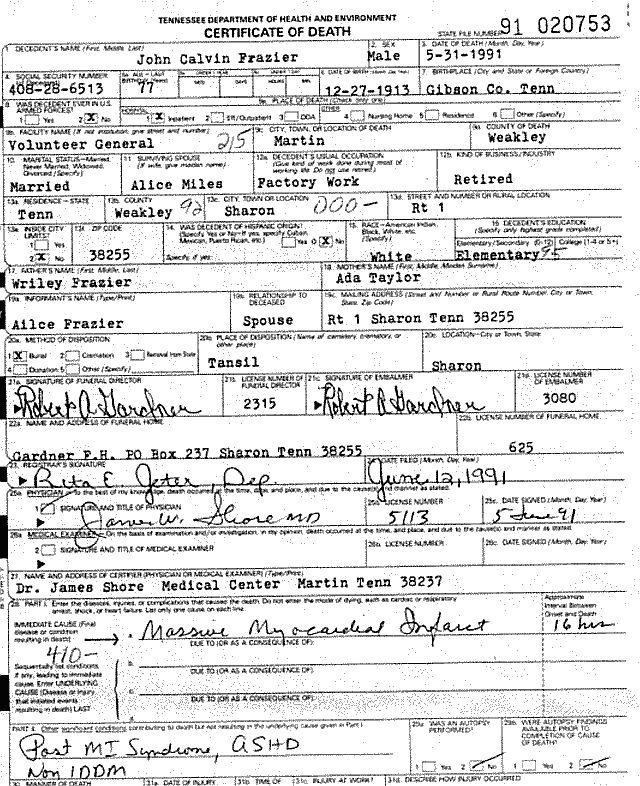 TENNESSEE DEPARTMENT OF HEALTH AND ENVIRONMENT
CERTIFICATE OF DEATH
STATE FILE NUMBER 91 020753
1. DECEDENT'S NAME (First, Middle, Last) 2. SEX 3. DATE OF DEATH (Month, Day, Year)
John Calvin Frazier Male 5-31-1991
4. SOCIAL SECURITY NUMBER 5a. AGE - LAST BIRTHDAY (Years) 6. DATE OF BIRTH 7. BIRTHPLACE (City and State or Foreign Country)
408-28-6513 77 12-27-1913 Gibson Co. Tenn
8. WAS DECEDENT EVER IN U.S. ARMED FORCES? 9a. PLACE OF DEATH (Check only one)
1 Yes 2 X No HOSPITAL 1 X Inpatient 2 ER/Outpatient 3 DOA OTHER 4 Nursing Home 5 Residence 6 Other (Specify)
9b. FACILITY NAME (If not institution, give street and number) 9c. CITY, TOWN, OR LOCATION OF DEATH 9d. COUNTY OF DEATH
Volunteer General 215 Martin Weakley
10. MARITAL STATUS-Married, Never Married, Widowed, Divorced (Specify) 11. SURVIVING SPOUSE (If wife, give maiden name) 12a. DECEDENT'S USUAL OCCUPATION (Give kind of work done during most of working life. Do not use retired.) 12b. KIND OF BUSINESS/INDUSTRY
Married Alice Miles Factory Work Retired
13a. RESIDENCE - STATE 13b. COUNTY 13c. CITY, TOWN OR LOCATION 13d. STREET AND NUMBER OR RURAL LOCATION
Tenn Weakley 92 Sharon 000- Rt 1
13e. INSIDE CITY LIMITS? 13f. ZIP CODE 14. WAS DECEDENT OF HISPANIC ORIGIN? (Specify Yes or No-If yes, specify Cuban, Mexican, Puerto Rican, etc.) 15. RACE-American Indian, Black, White, etc. (Specify) 16. DECEDENT'S EDUCATION (Specify only highest grade completed)
1 Yes Yes X No Elementary/Secondary (0-12) College (1-4 or 5+)
2 X No 38255 Specify if yes: White Elementary
17. FATHER'S NAME (First, Middle, Last) 18. MOTHER'S NAME (First, Middle, Maiden Surname)
Wriley Frazier Ada Taylor
19a. INFORMANT'S NAME (Type/Print) 19b. RELATIONSHIP TO DECEASED 19c. MAILING ADDRESS (Street and Number or Rural Route Number, City or Town, State, Zip Code)
Ailce Frazier Spouse Rt 1 Sharon Tenn 38255
20a. METHOD OF DISPOSITION 20b. PLACE OF DISPOSITION (Name of cemetery, crematory, or other place) 20c. LOCATION-City or Town, State
1 X Burial 2 Cremation 3 Removal from State
4 Donation 5 Other (Specify) Tansil Sharon
21a. SIGNATURE OF FUNERAL DIRECTOR 21b. LICENSE NUMBER OF FUNERAL DIRECTOR 21c. SIGNATURE OF EMBALMER 21d. LICENSE NUMBER OF EMBALMER
Robert A Gardner 2315 Robert A Gardner 3080
22a. NAME AND ADDRESS OF FUNERAL HOME 22b. LICENSE NUMBER OF FUNERAL HOME
Gardner F.H. PO Box 237 Sharon Tenn 38255 625
23. REGISTRAR'S SIGNATURE 24. DATE FILED (Month, Day, Year)
Rita E. Jeter, Dep. June 12, 1991
25a. PHYSICIAN - To the best of my knowledge, death occurred at the time, date, and place, and due to the cause(s) and manner as stated.
1 SIGNATURE AND TITLE OF PHYSICIAN 25b. LICENSE NUMBER 25c. DATE SIGNED (Month, Day, Year)
James W. Shore MD 5113 5 June 91
26a. MEDICAL EXAMINER - On the basis of examination and/or investigation, in my opinion, death occurred at the time, and place, and due to the cause(s) and manner as stated.
2 SIGNATURE AND TITLE OF MEDICAL EXAMINER 26b. LICENSE NUMBER 26c. DATE SIGNED (Month, Day, Year)
27. NAME AND ADDRESS OF CERTIFIER (PHYSICIAN OR MEDICAL EXAMINER) (Type/Print)
Dr. James Shore Medical Center Martin Tenn 38237
28. PART I. Enter the diseases, injuries, or complications that caused the death. Do not enter the mode of dying, such as cardiac or respiratory arrest, shock, or heart failure. List only one cause on each line.
Approximate Interval Between Onset and Death
IMMEDIATE CAUSE (Final disease or condition resulting in death) a. Massive Myocardial Infarct 16 hrs
DUE TO (OR AS A CONSEQUENCE OF):
410-
b.
Sequentially list conditions if any, leading to immediate cause. Enter UNDERLYING CAUSE (Disease or injury that initiated events resulting in death) LAST
DUE TO (OR AS A CONSEQUENCE OF):
c.
DUE TO (OR AS A CONSEQUENCE OF):
d.
PART II. Other significant conditions contributing to death but not resulting in the underlying cause given in Part I. 29a. WAS AN AUTOPSY PERFORMED? 29b. WERE AUTOPSY FINDINGS AVAILABLE PRIOR TO COMPLETION OF CAUSE OF DEATH?
Post MI Syndrome, ASHD
Non IDDM 1 Yes 2 No 1 Yes 2 No
30. MANNER OF DEATH 31a. DATE OF INJURY 31b. TIME OF 31c. INJURY AT WORK? 31d. DESCRIBE HOW INJURY OCCURRED